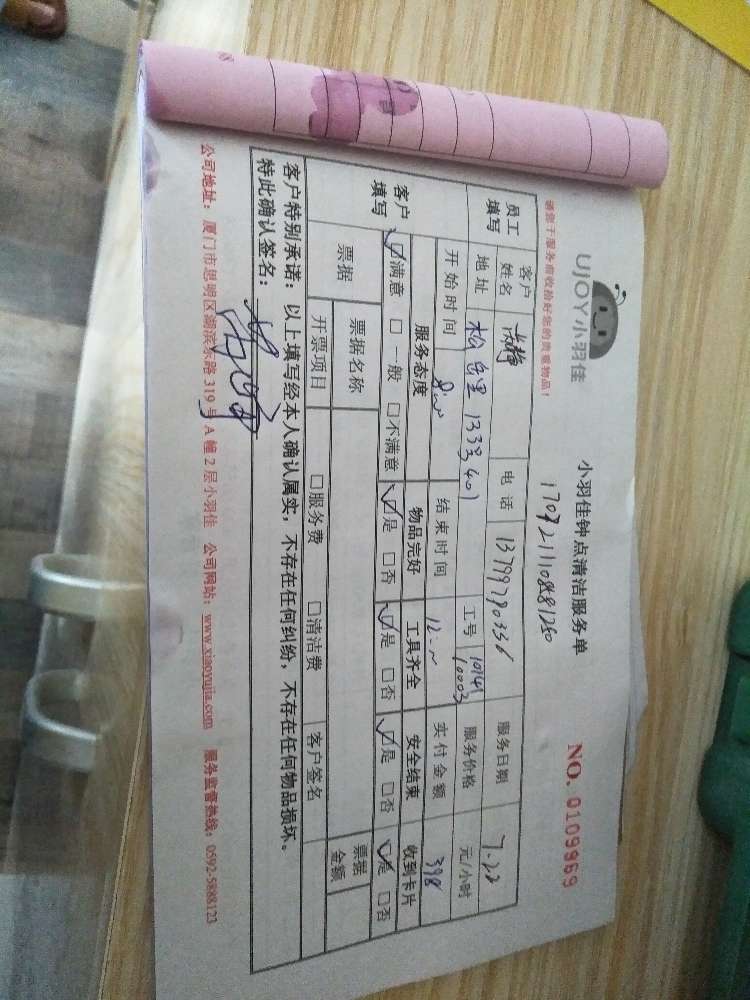 UJOY小羽佳
小羽佳钟点清洁服务单
NO. 0109969
请您于服务前收拾好您的贵重物品!
员工填写
客户姓名 电话 13799790336 服务日期 7-20
地址 松岳里 133号401 工号 10141 10003 服务价格 元/小时
开始时间 结束时间 实付金额 398
客户填写
服务态度 物品完好 工具齐全 安全结束 收到卡片
☑满意 □一般 □不满意 ☑是 □否 ☑是 □否 ☑是 □否 ☑是 □否
票据 票据名称 票据金额
开票项目 □服务费 □清洁费 客户签名
客户特别承诺：以上填写经本人确认属实，不存在任何纠纷，不存在任何物品损坏。
特此确认签名：
公司地址：厦门市思明区湖滨东路319号A幢2层小羽佳 公司网站：www.xiaoyujia.com 服务监督热线：0592-5888123